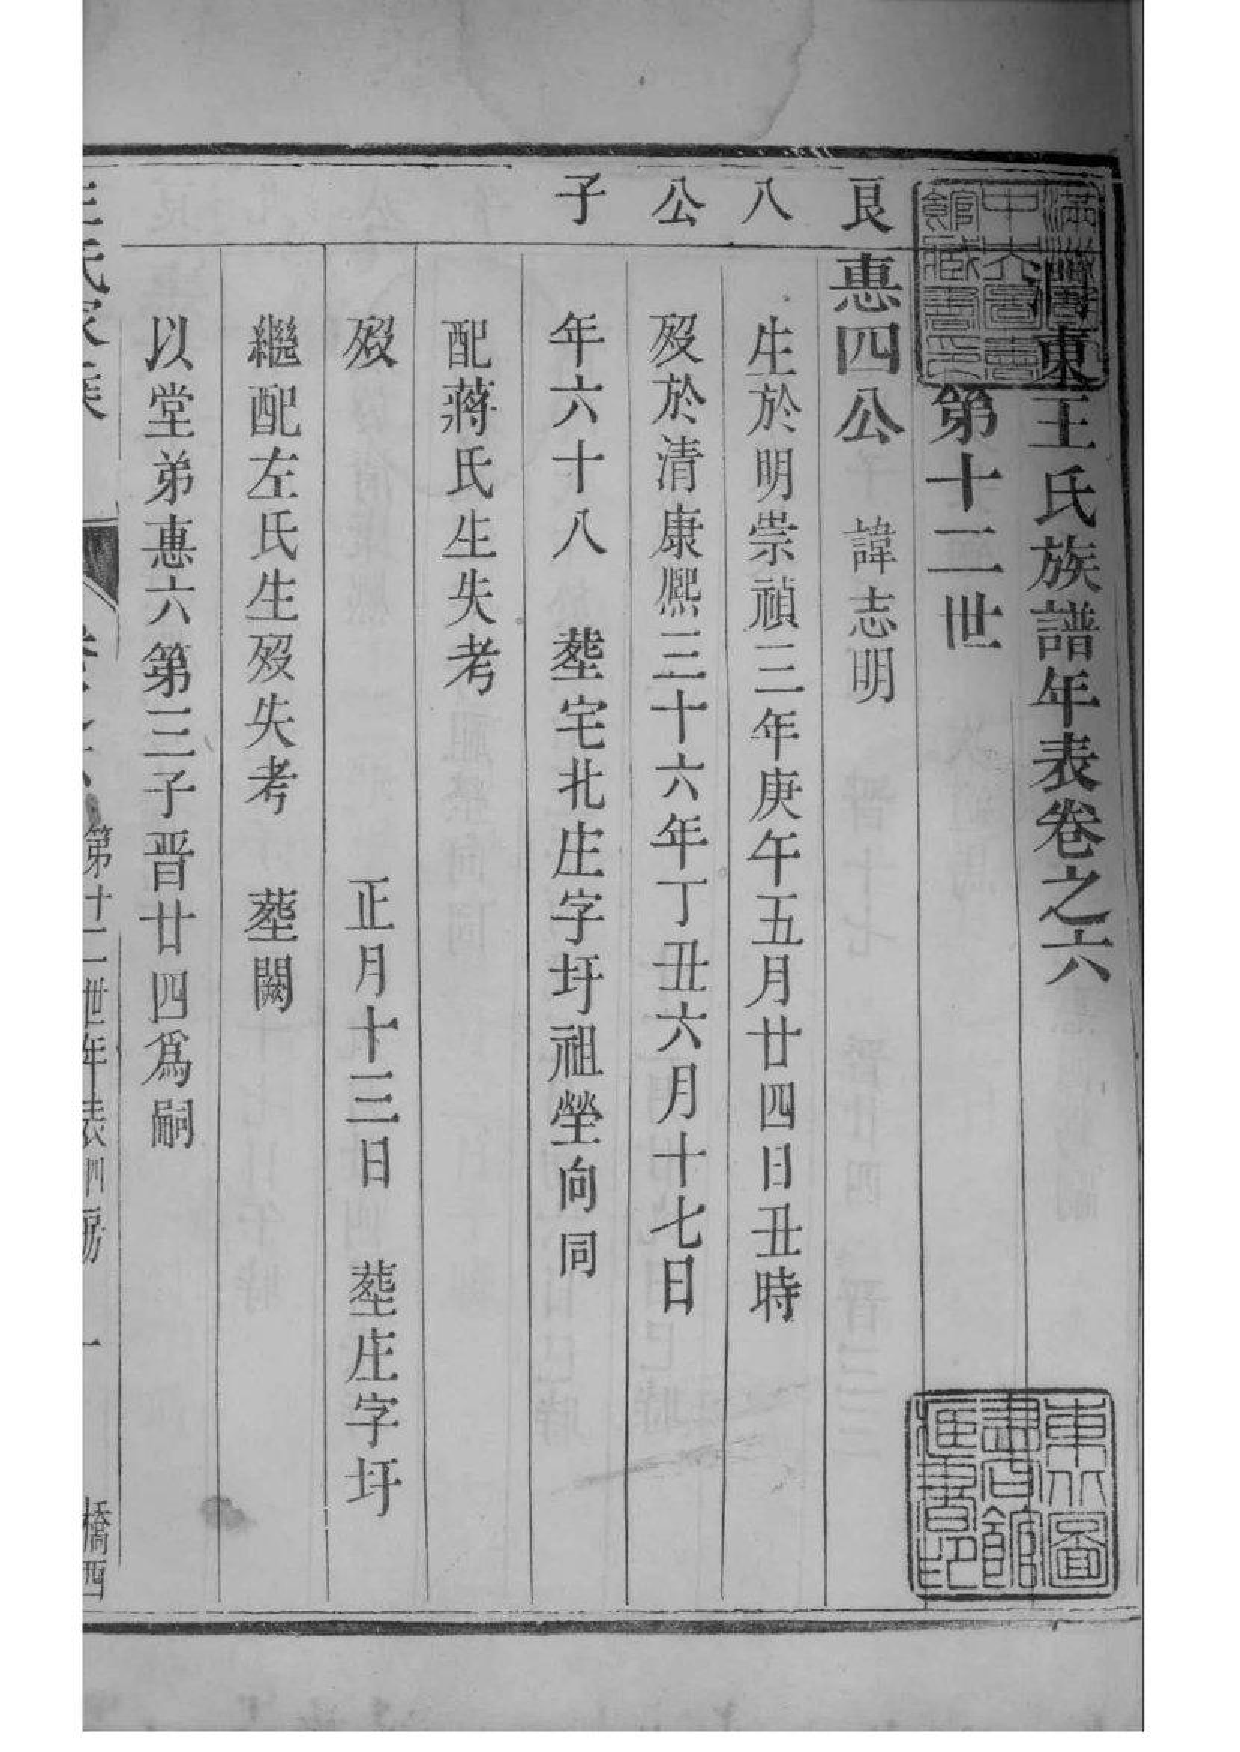 澗東王氏族譜年表卷之六
第十二世
艮八公子
惠四公 諱志明
生於明崇禎三年庚午五月廿四日丑時
歿於清康熙三十六年丁丑六月十七日
年六十八 塟宅北庄字圩祖塋向同
配蔣氏生失考
歿 正月十三日 塟庄字圩
繼配左氏生歿失考 塟闕
以堂弟惠六第三子晋廿四爲嗣
王氏家乘
卷之六 第十二世年表四房 一 橋西
東北圖書館所藏書印